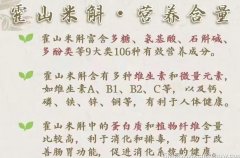 霍山米斛·营养含量
霍山米斛富含多糖、氨基酸、石斛碱、
多酚类等9大类106种有效营养成分。
霍山米斛含有多种维生素和微量元素,
如维生素A、B1、B2、C等,以及钙、
磷、铁、锌、铜等,有利于人体健康。
霍山米斛中的蛋白质和植物纤维含量
比较高,利于消化和排毒,有助于改
善肠胃功能,促进消化系统的健康。